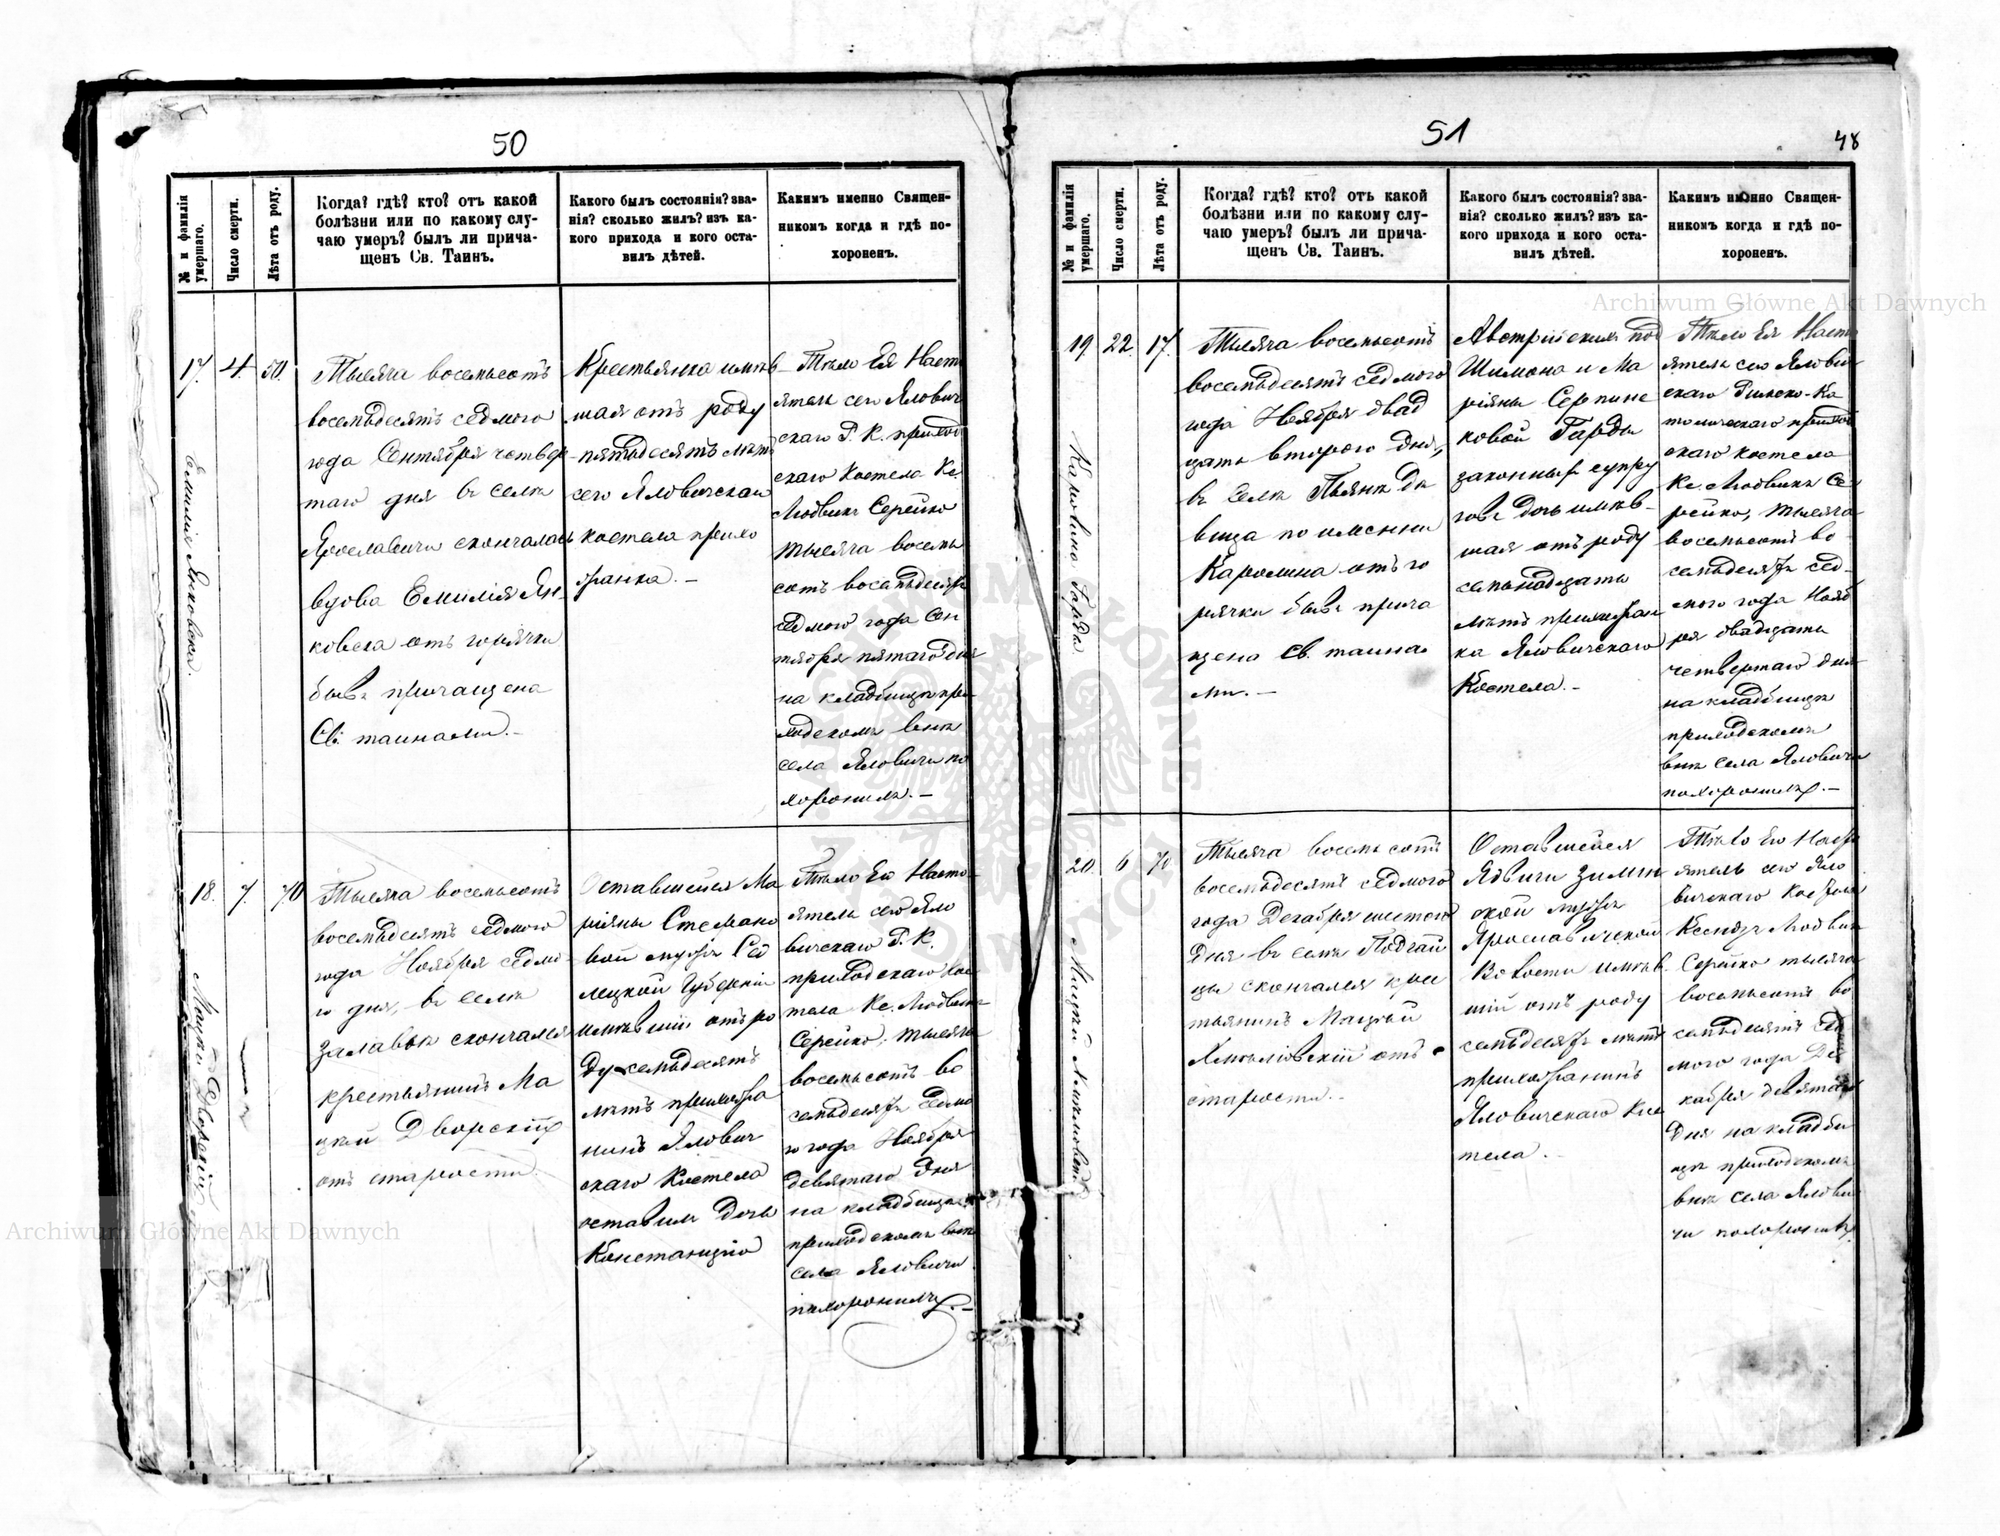 50
№ и фамилія умершаго.
Число смерти.
Лѣта отъ роду.
Когда? гдѣ? кто? отъ какой
болѣзни или по какому слу-
чаю умеръ? былъ ли прича-
щенъ Св. Таинъ.
Какого былъ состоянія? зва-
нія? сколько жилъ? изъ ка-
кого прихода и кого оста-
вилъ дѣтей.
Каимъ именно Священ-
никомъ когда и гдѣ по-
хороненъ.
17.
Емилія Янковска.
4.
50.
Тысяча восемьсотъ
восемьдесятъ седмого
года Сентября четвер
таго дня въ селѣ
Ярославичи скончалась
вдова Емилія Ян-
ковска отъ горячки
бывъ причащена
Св. тайнами.-
Крестьянка имѣв
шая отъ роду
пятьдесятъ лѣтъ
сего Яловичскаго
костела прихо
жанка.-
Тѣло Ея Насто
ятель сего Ялович
скаго Р. К. приход
скаго Костела Кс.
Людвикъ Серейко
тысяча восемь
сотъ восемьдесятъ
седмого года Сен
тября пятаго дня
на кладбищѣ при
ходскомъ внѣ
села Яловичи по
хоронилъ.-
18.
Мацей Дворскій
7.
70
Тысяча восемьсотъ
восемьдесятъ седмого
года Ноября седмо
го дня, въ селѣ
Залавье скончался
крестьянинъ Ма
цей Дворскій
отъ старости.
Оставшейся Ма
ріяны Стемано
вой мужъ Сѣд
лецкой Губерніи
имѣвшій отъ ро
ду семьдесятъ
лѣтъ прихожа
нинъЯлович
скаго Костела
оставилъ дочь
Констанцію
Тѣло Его Насто-
ятель сего Яло
вичскаго Р. К.
приходскаго кос
тела Кс. Людвикъ
Серейко тысяча
восемьсотъ во
семьдесятъ седмо
го года Ноября
девятаго дня
на кладбищѣ
приходскомъ внѣ
села Яловичи
похоронилъ.-
51
48
№ и фамилія умершаго.
Число смерти.
Лѣта отъ роду.
Когда? гдѣ? кто? отъ какой
болѣзни или по какому слу-
чаю умеръ? былъ ли прича-
щенъ Св. Таинъ.
Какого былъ состоянія? зва-
нія? сколько жилъ? изъ ка-
кого прихода и кого оста-
вилъ дѣтей.
Каимъ именно Священ-
никомъ когда и гдѣ по-
хороненъ.
19
Каролина Гарда
22.
17.
Тысяча восемьсотъ
восемьдесятъ седмого
года Ноября двад
цать второго дня,
въ селѣ Пьянѣ дѣ
вица по имени
Каролина отъ го
рячки бывъ прича
щена Св. тайна
ми.-
Австрійскихъ под
Шимона и Ма
ріяны Серпине
ковой Гарды
законныхъ супру
говъ дочь имѣв-
шая отъ роду
семьнадцать
лѣтъ прихожан
ка Яловичскаго
Костела.-
Тѣло Ея Насто
ятель сего Ялович
скаго Римско-Ка
толическаго приход
скаго костела
Кс. Людвикъ Се-
рейко, тысяча
восемьсотъ во
семьдесятъ сед-
мого года Нояб
ря двадцать
четвертаго дня
на кладбищѣ
приходскомъ
внѣ села Яловичи
похоронилъ.-
20.
Мацей
6
70
Тысяча восемьсотъ
восемьдесятъ седмого
года Декабря шестого
дня въ селѣ Подгай
цы скончался крес
тьянинъ Мацѣй
отъ
старости.-
Оставшейся
Ядвиги Зилин
ской мужъ
Ярославичской
Волости имѣв
шій отъ роду
семьдесятъ лѣтъ
прихожанинъ
Яловичскаго Кос
тела.-
Тѣло Его Насто
ятель сего Яло
вичскаго Костела
Ксендзъ Людвикъ
Серейко тысяча
восемьсотъ во
семьдесятъ сед
мого года Де
кабря девятаго
дня на кладби
щѣ приходскомъ
внѣ села Ялови
чи похоронилъ
Archiwum Główne Akt Dawnych
Archiwum Główne Akt Dawnych